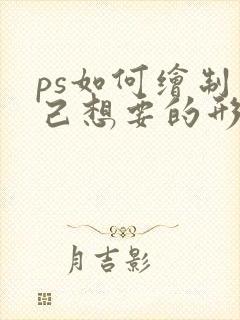 ps如何繪制
己想要的形
月吉影